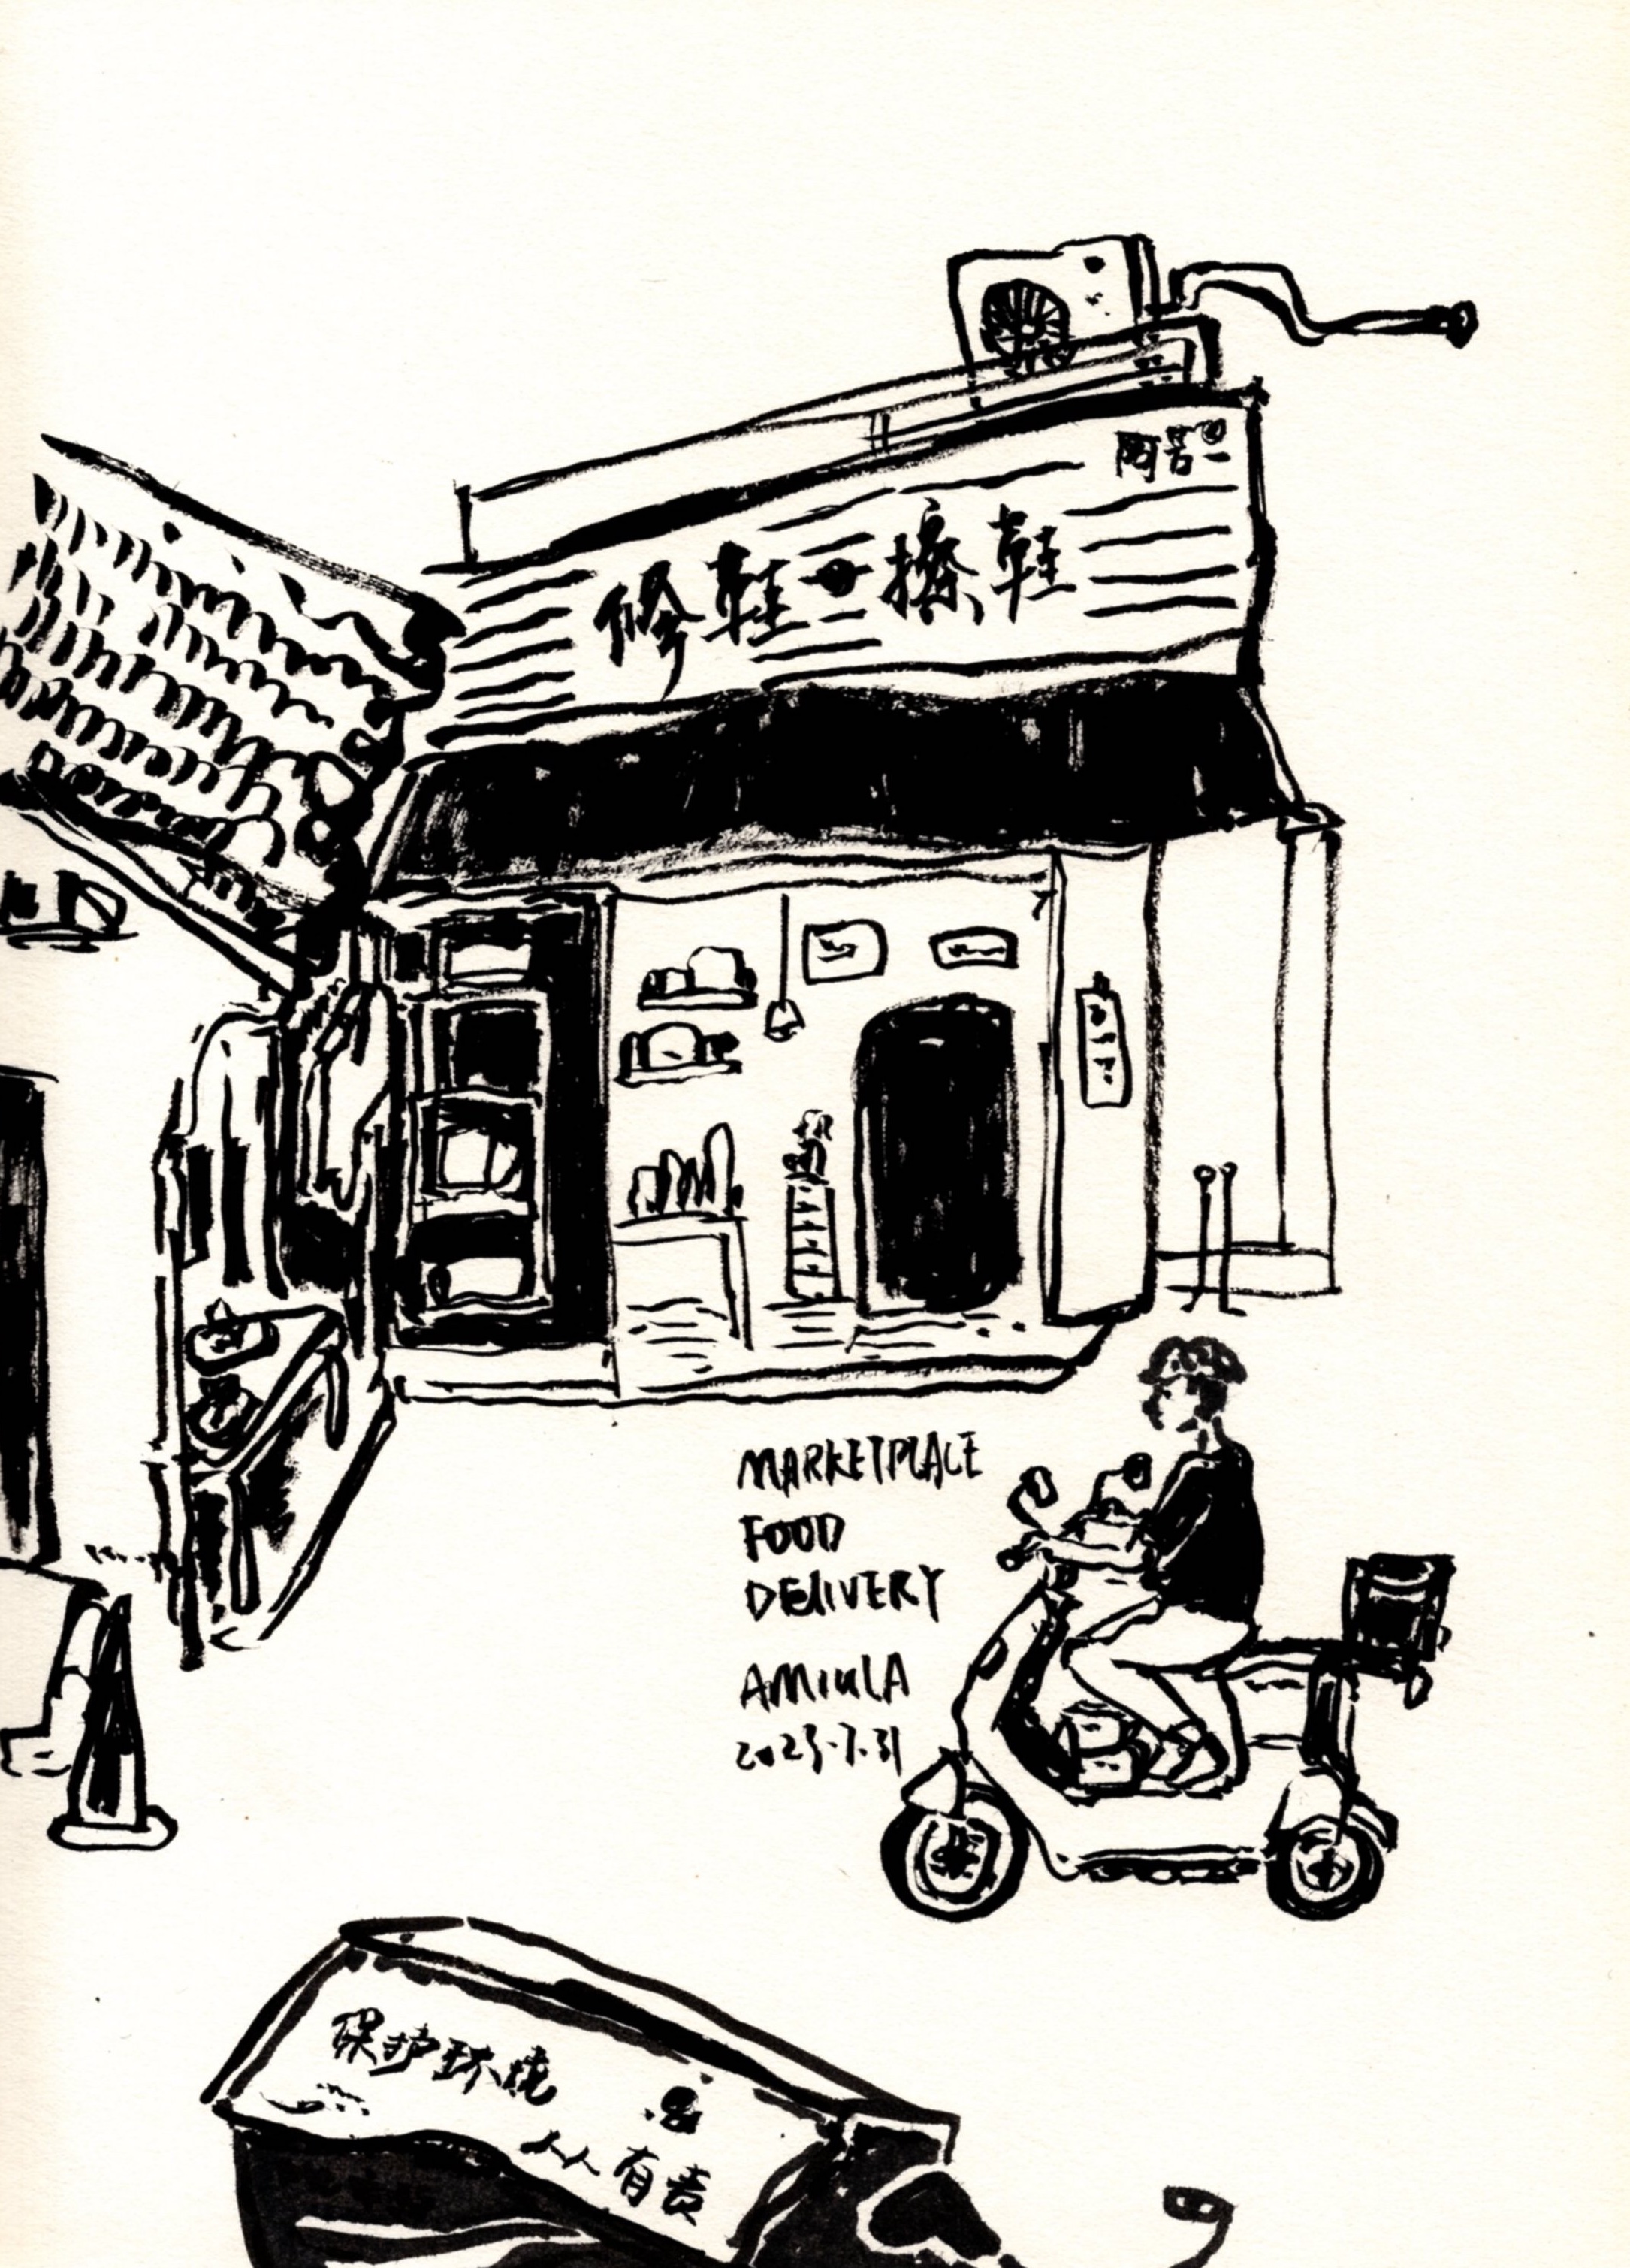 修鞋·擦鞋
MARKETPLACE
FOOD
DELIVERY
AMIULA
2023.7.31
保护环境
人人有责